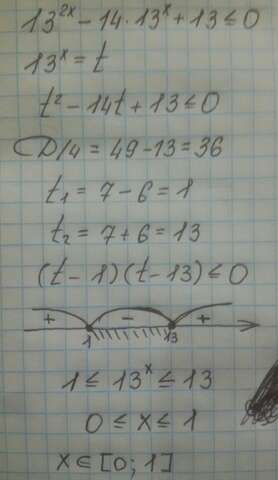 13²ˣ - 14 · 13ˣ + 13 ≤ 0
13ˣ = t
t² - 14t + 13 ≤ 0
D/4 = 49 - 13 = 36
t₁ = 7 - 6 = 1
t₂ = 7 + 6 = 13
(t - 1)(t - 13) ≤ 0
+ - +
1 13
1 ≤ 13ˣ ≤ 13
0 ≤ x ≤ 1
x ∈ [0; 1]